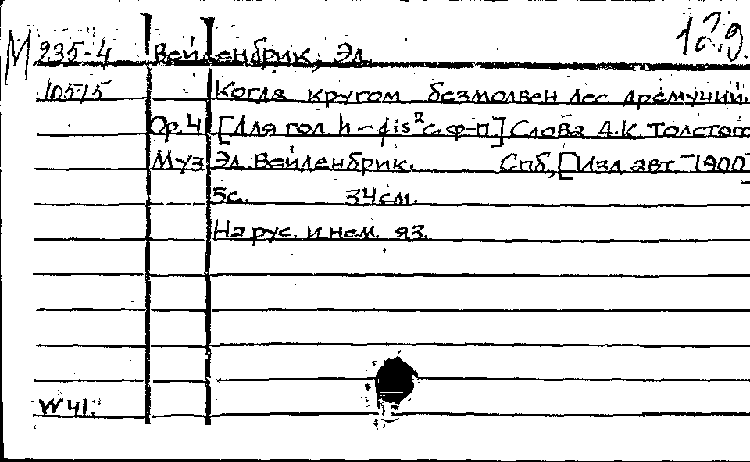 М 235-4 Вейденбрик, Эл. 12.9.
10515 Когда кругом безмолвен лес дремучий.
Op. 4 [Для гол. h-fis² с. ф-п] Слова А.К. Толстого
Муз. Эл. Вейденбрик. Спб, [Изд. авт. 1900]
5с. 34см.
На рус. и нем. яз.
W 41.